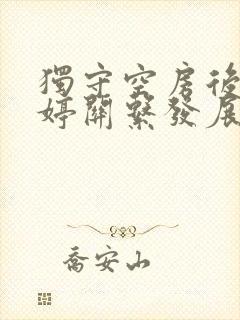 獨守空房後
婷關繫發展
喬安山